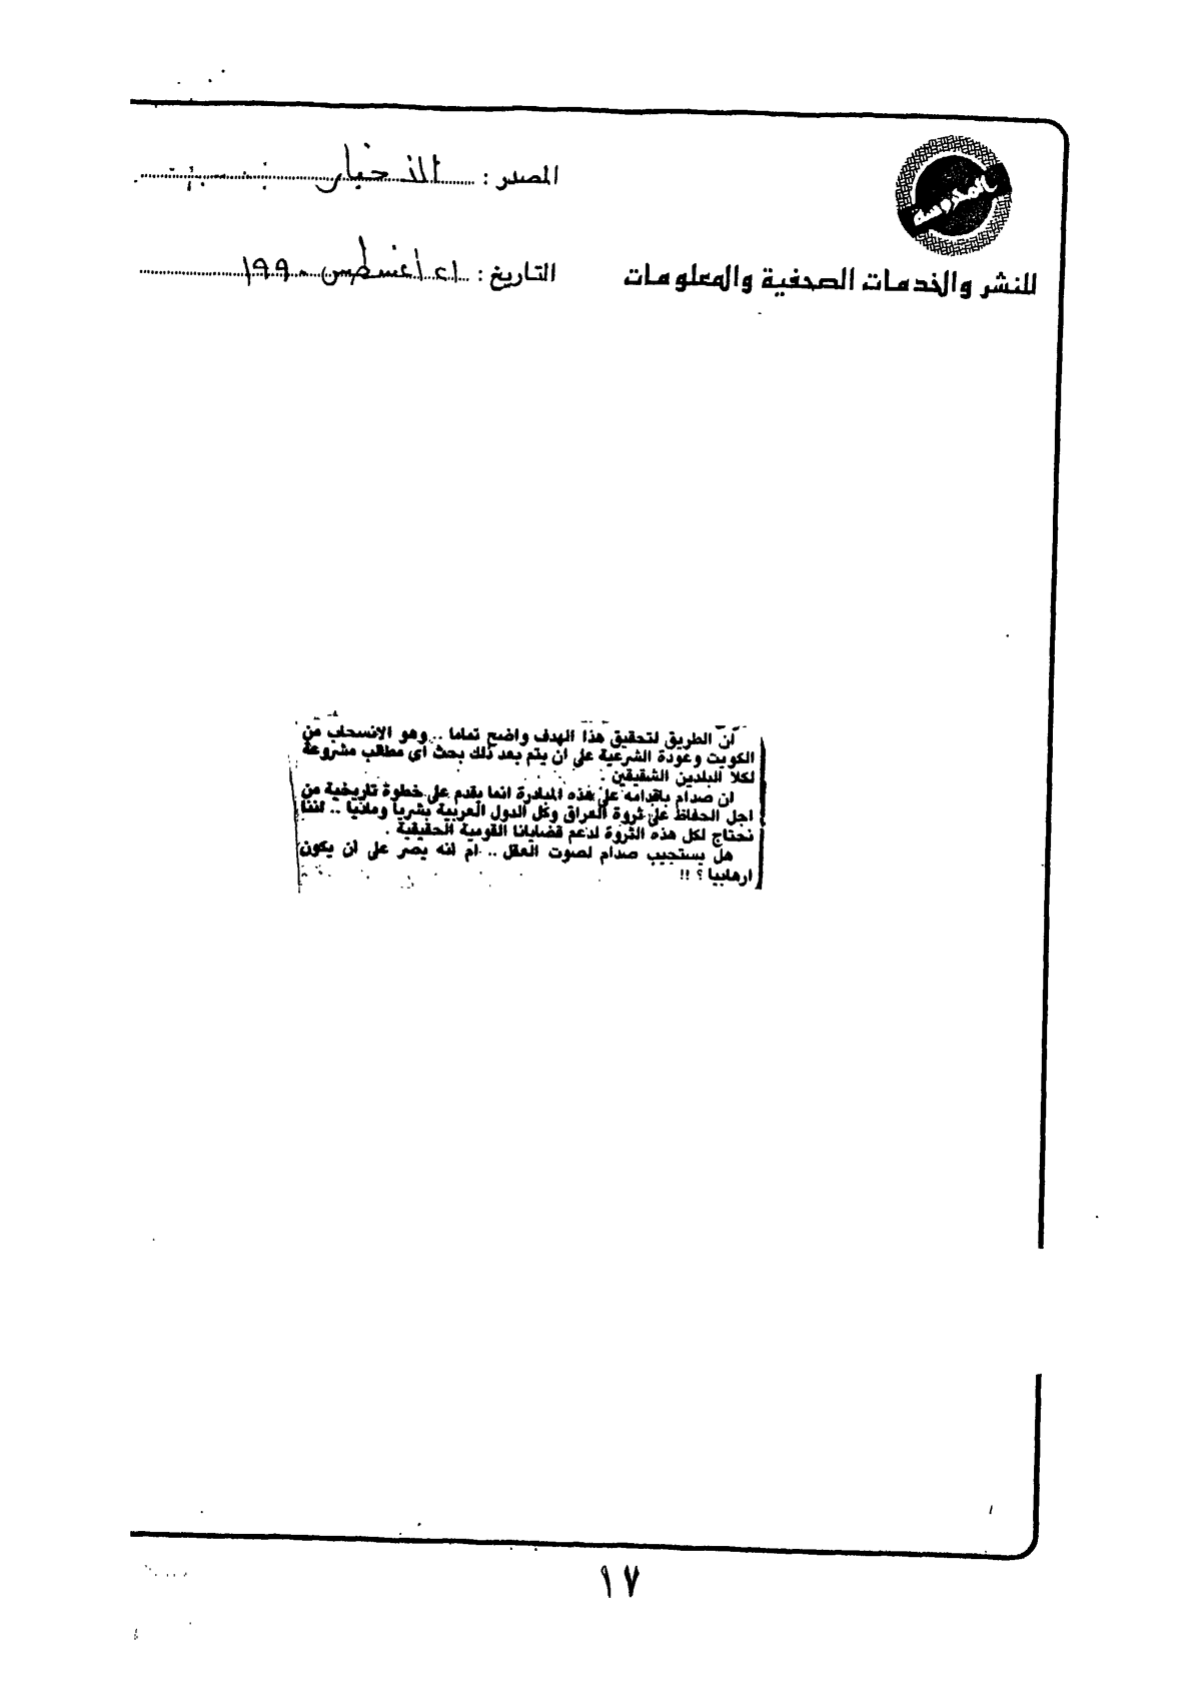 المحروسة
للنشر والخدمات الصحفية والمعلومات
المصدر : الأخبار
التاريخ : ٤١ أغسطس ١٩٩٠
ان الطريق لتحقيق هذا الهدف واضح تماما .. وهو الانسحاب من
الكويت وعودة الشرعية على ان يتم بعد ذلك بحث أى مطالب مشروعة
لكلا البلدين الشقيقين .
ان صدام باقدامه على هذه المبادرة انما يقدم على خطوة تاريخية من
اجل الحفاظ على ثروة العراق وكل الدول العربية بشريا وماديا .. اننا
نحتاج لكل هذه الثروة لدعم قضايانا القومية الحقيقية .
هل يستجيب صدام لصوت العقل .. ام انه يصر على ان يكون
ارهابيا ؟ !!
١٧